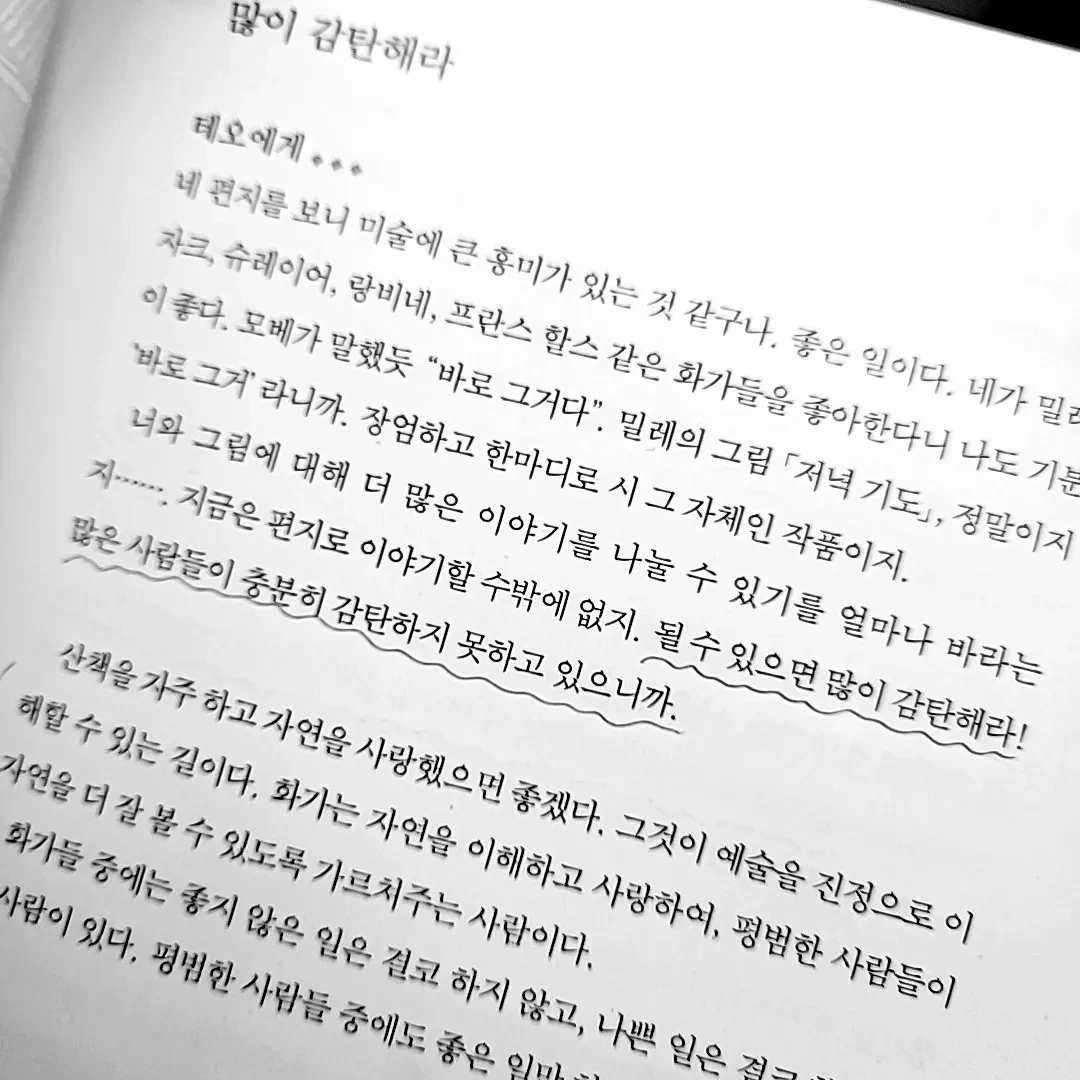 많이 감탄해라
테오에게 …
네 편지를 보니 미술에 큰 흥미가 있는 것 같구나. 좋은 일이다. 네가 밀레
자크, 슈레이어, 랑비네, 프란스 할스 같은 화가들을 좋아한다니 나도 기분
이 좋다. 모베가 말했듯 “바로 그거다”. 밀레의 그림 「저녁 기도」, 정말이지
‘바로 그거’ 라니까. 장엄하고 한마디로 시 그 자체인 작품이지.
너와 그림에 대해 더 많은 이야기를 나눌 수 있기를 얼마나 바라는
지……. 지금은 편지로 이야기할 수밖에 없지. 될 수 있으면 많이 감탄해라!
많은 사람들이 충분히 감탄하지 못하고 있으니까.
산책을 자주 하고 자연을 사랑했으면 좋겠다. 그것이 예술을 진정으로 이
해할 수 있는 길이다. 화가는 자연을 이해하고 사랑하여, 평범한 사람들이
자연을 더 잘 볼 수 있도록 가르쳐주는 사람이다.
화가들 중에는 좋지 않은 일은 결코 하지 않고, 나쁜 일은 결코
사람이 있다. 평범한 사람들 중에도 좋은 일만